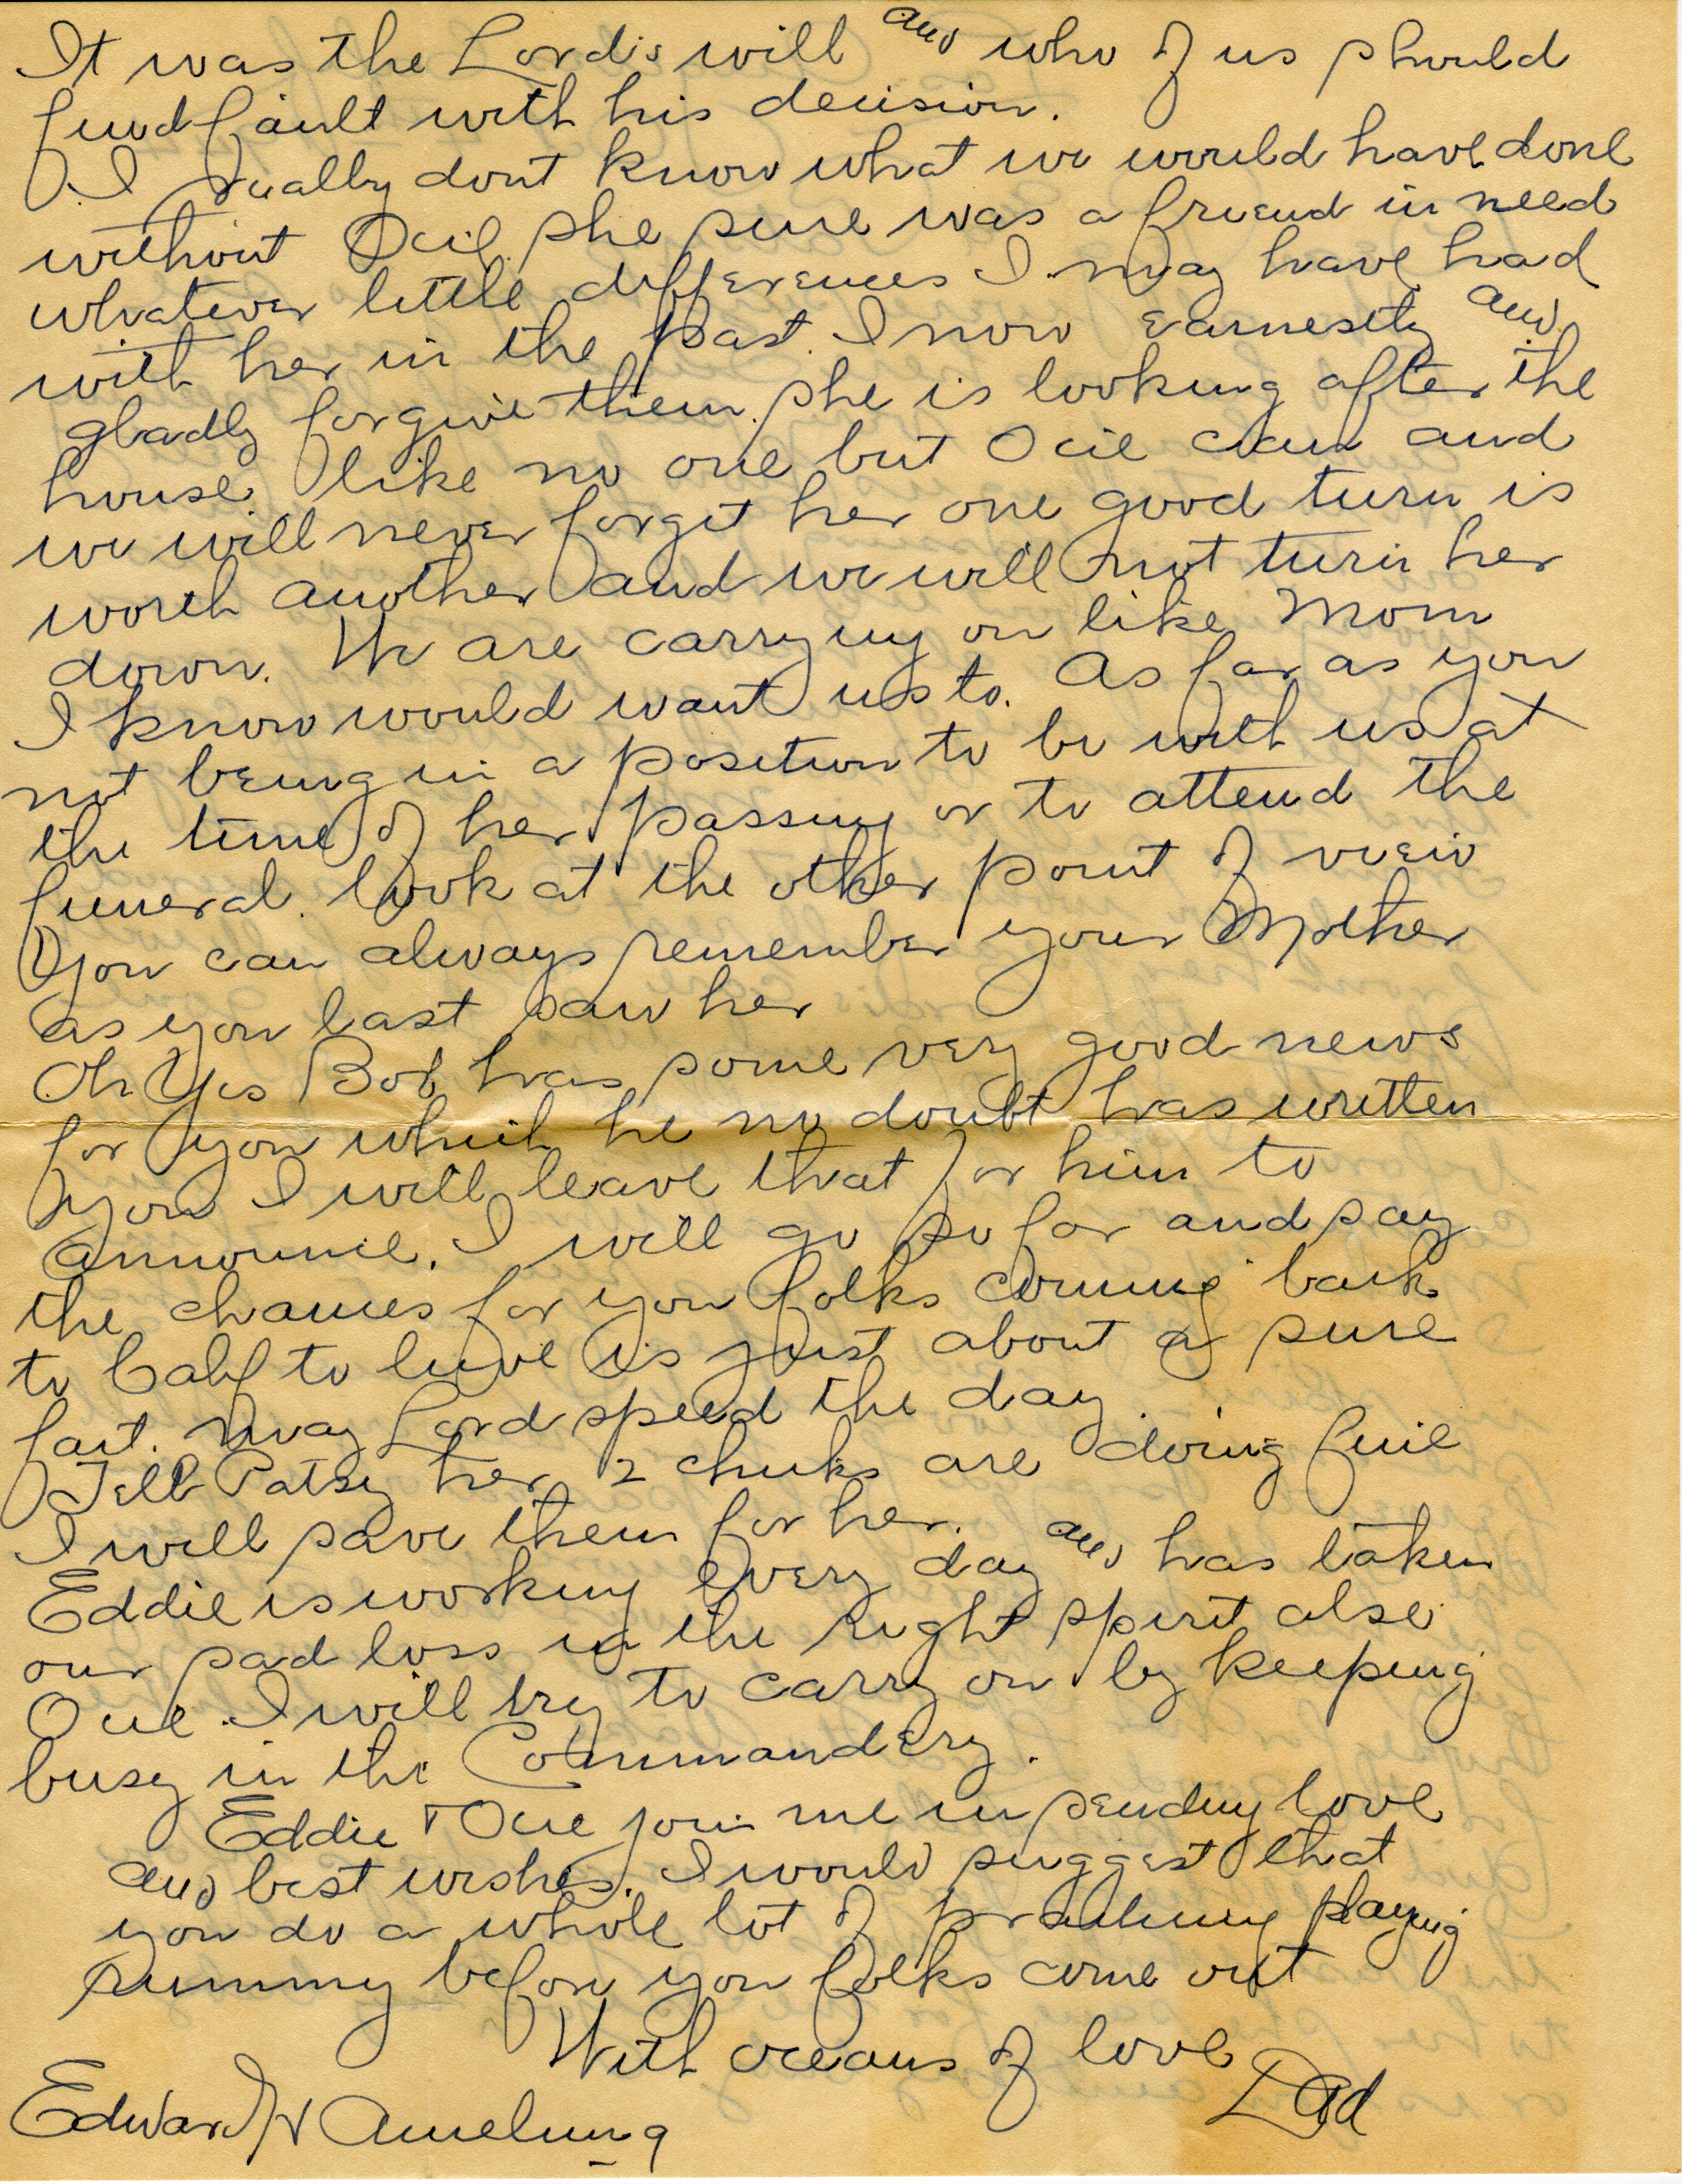 It was the Lord's will and who of us should
find fault with his decision.
I really dont know what we would have done
without Ocie she sure was a friend in need
whatever little differences I may have had
with her in the past. I now earnestly and
gladly forgive them. she is looking after the
house like no one but Ocie can and
we will never forget her one good turn is
worth another and we will not turn her
down. We are carrying on like Mom
I know would want us to. As far as you
not being in a position to be with us at
the time of her passing or to attend the
funeral. look at the other point of view
You can always remember your Mother
as you last saw her
Oh Yes Bob has some very good news
for you which he no doubt has written
you I will leave that for him to
announce. I will go so far and say
the chances for you folks coming back
to Calif to live is just about a sure
fact. May Lord speed the day.
Tell Patsy her 2 chicks are doing fine
I will save them for her.
Eddie is working every day and has taken
our sad loss in the right spirit also
Ocie. I will try to carry on by keeping
busy in the Commandery.
Eddie + Ocie join me in sending love
and best wishes. I would suggest that
you do a whole lot of practicing playing
rummy before you folks come out
With oceans of love
Dad
Edward Amelung